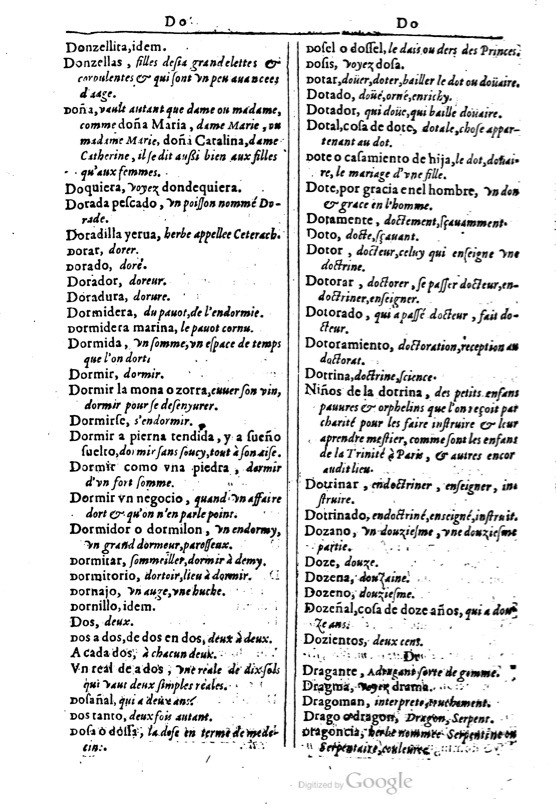 Do
Do
Donzellita, idem.
Donzellas, filles desia grandelettes &
coroulentes & qui sont vn peu auancees
d'aage.
doña, vault autant que dame ou madame,
comme doña Maria, dame Marie, ou
madame Marie, doña Catalina, dame
Catherine, il se dit aussi bien aux filles
qu'aux femmes.
Doquiera, voyez dondequiera.
Dorada pescado, vn poisson nommé Do-
rade.
Doradilla yerua, herbe appellee Ceterach.
dorar, dorer.
dorado, doré.
Dorador, doreur.
Doradura, dorure.
Dormidera, du pauot, de l'endormie.
dormidera marina, le pauot cornu.
Dormida, vn somme, vn espace de temps
que l'on dort.
Dormir, dormir.
Dormir la mona o zorra, cuuer son vin,
dormir pour se desenyurer.
Dormirse, s'endormir.
Dormir a pierna tendida, y a sueño
suelto, dormir sans soucy, tout à son aise.
Dormir como vna piedra, dormir
d'vn fort somme.
Dormir vn negocio, quand vn affaire
dort & qu'on n'en parle point.
Dormidor o dormilon, vn endormy,
vn grand dormeur, paresseux.
dormitar, sommeiller, dormir à demy.
dormitorio, dortoir, lieu à dormir.
dornajo, vn auge, vne huche.
dornillo, idem.
Dos, deux.
dos a dos, de dos en dos, deux à deux.
A cada dos, à chacun deux.
Vn real de a dos, vne reale de dix sols
qui vaut deux simples reales.
dosañal, qui a deux ans.
dos tanto, deux fois autant.
dosa o dossa, la dose en terme de mede-
cine.
dosel o dossel, le dais ou ders des Princes.
dosis, voyez dosa.
dotar, doüer, doter, bailler le dot ou doüaire.
Dotado, doüé, orné, enrichy.
Dotador, qui doüe, qui baille doüaire.
Dotal, cosa de dote, dotale, chose appar-
tenant au dot.
dote o casamiento de hija, le dot, doüai-
re, le mariage d'vne fille.
Dote, por gracia en el hombre, vn don
& grace en l'homme.
Dotamente, doctement, sçauamment.
Doto, docte, sçauant.
Dotor, docteur, celuy qui enseigne vne
doctrine.
Dotorar, doctorer, se passer docteur, en-
doctriner, enseigner.
Dotorado, qui a passé docteur, fait do-
cteur.
Dotoramiento, doctoration, reception au
doctorat.
Dotrina, doctrine, science.
Niños de la dotrina, des petits enfans
pauures & orphelins que l'on reçoit par
charité pour les faire instruire & leur
aprendre mestier, comme sont les enfans
de la Trinité à Paris, & autres encor
audit lieu.
Dotrinar, endoctriner, enseigner, in-
struire.
Dotrinado, endoctriné, enseigné, instruit.
Dozano, vn douziesme, vne douziesme
partie.
Doze, douze.
Dozena, douzaine.
Dozeno, douziesme.
Dozeñal, cosa de doze años, qui a dou-
ze ans.
Dozientos, deux cens.
Dr
Dragante, Adragant sorte de gomme.
Dragma, voyez drama.
Dragoman, interprete, truchement.
Drago o dragon, Dragon, Serpent.
dragoncia, herbe nommee Serpentine ou
Serpentaire, couleuree.
Digitized by Google